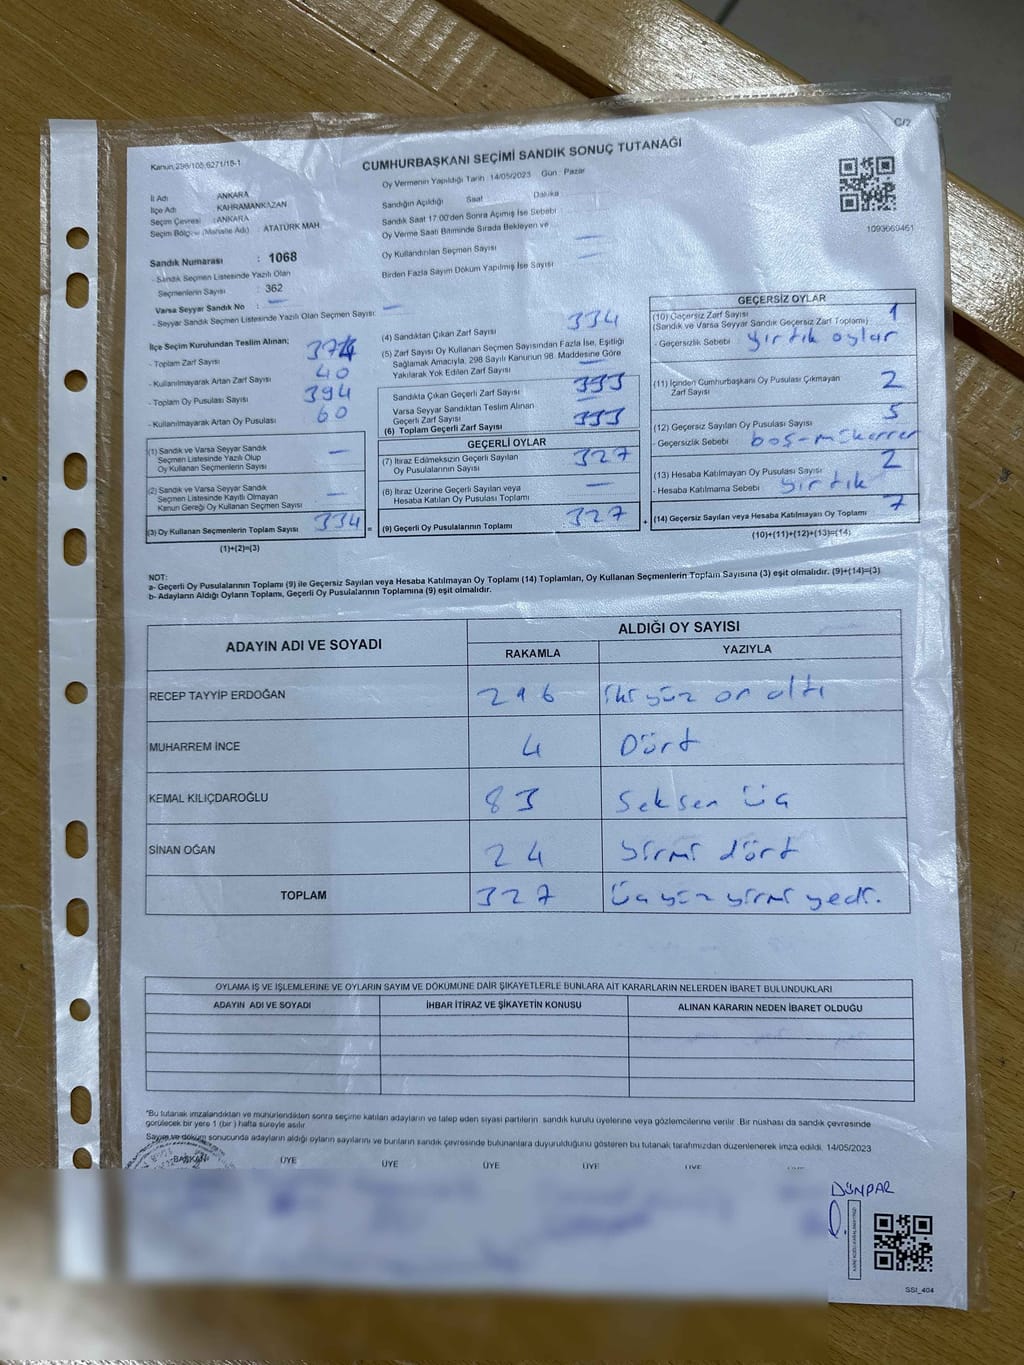 C/2
Kanun 298/105,6271/18-1
CUMHURBAŞKANI SEÇİMİ SANDIK SONUÇ TUTANAĞI
Oy Vermenin Yapıldığı Tarih : 14/05/2023 Gün : Pazar
İl Adı ANKARA
İlçe Adı KAHRAMANKAZAN
Seçim Çevresi : ANKARA
Seçim Bölgesi (Mahalle Adı) ATATÜRK MAH.
Sandığın Açıldığı Saat Dakika
Sandık Saat 17:00'den Sonra Açımış İse Sebebi
Oy Verme Saati Bitiminde Sırada Bekleyen ve
Oy Kullandırılan Seçmen Sayısı
Birden Fazla Sayım Döküm Yapılmış İse Sayısı
1093669461
Sandık Numarası : 1068
- Sandık Seçmen Listesinde Yazılı Olan
Seçmenlerin Sayısı : 362
Varsa Seyyar Sandık No :
- Seyyar Sandık Seçmen Listesinde Yazılı Olan Seçmen Sayısı:
İlçe Seçim Kurulundan Teslim Alınan;
- Toplam Zarf Sayısı 374
- Kullanılmayarak Artan Zarf Sayısı 40
- Toplam Oy Pusulası Sayısı 394
- Kullanılmayarak Artan Oy Pusulası 60
(1) Sandık ve Varsa Seyyar Sandık
Seçmen Listesinde Yazılı Olup
Oy Kullanan Seçmenlerin Sayısı
(2) Sandık ve Varsa Seyyar Sandık
Seçmen Listesinde Kayıtlı Olmayan
Kanun Gereği Oy Kullanan Seçmen Sayısı
(3) Oy Kullanan Seçmenlerin Toplam Sayısı 334 =
(1)+(2)=(3)
(4) Sandıktan Çıkan Zarf Sayısı 334
(5) Zarf Sayısı Oy Kullanan Seçmen Sayısından Fazla İse, Eşitliği
Sağlamak Amacıyla, 298 Sayılı Kanunun 98. Maddesine Göre
Yakılarak Yok Edilen Zarf Sayısı
Sandıkta Çıkan Geçerli Zarf Sayısı 333
Varsa Seyyar Sandıktan Teslim Alınan
Geçerli Zarf Sayısı
(6) Toplam Geçerli Zarf Sayısı 333
GEÇERLİ OYLAR
(7) İtiraz Edilmeksizin Geçerli Sayılan
Oy Pusulalarının Sayısı 327
(8) İtiraz Üzerine Geçerli Sayılan veya
Hesaba Katılan Oy Pusulası Toplamı
(9) Geçerli Oy Pusulalarının Toplamı 327 +
GEÇERSİZ OYLAR
(10) Geçersiz Zarf Sayısı 1
(Sandık ve Varsa Seyyar Sandık Geçersiz Zarf Toplamı)
- Geçersizlik Sebebi : yırtık oylar
(11) İçinden Cumhurbaşkanı Oy Pusulası Çıkmayan
Zarf Sayısı 2
(12) Geçersiz Sayılan Oy Pusulası Sayısı 5
- Geçersizlik Sebebi boş-mükerrer
(13) Hesaba Katılmayan Oy Pusulası Sayısı 2
- Hesaba Katılmama Sebebi yırtık
(14) Geçersiz Sayılan veya Hesaba Katılmayan Oy Toplamı 7
(10)+(11)+(12)+(13)=(14)
NOT:
a- Geçerli Oy Pusulalarının Toplamı (9) ile Geçersiz Sayılan veya Hesaba Katılmayan Oy Toplamı (14) Toplamları, Oy Kullanan Seçmenlerin Toplam Sayısına (3) eşit olmalıdır. (9)+(14)=(3)
b- Adayların Aldığı Oyların Toplamı, Geçerli Oy Pusulalarının Toplamına (9) eşit olmalıdır.
ADAYIN ADI VE SOYADI
ALDIĞI OY SAYISI
RAKAMLA YAZIYLA
RECEP TAYYİP ERDOĞAN 216 iki yüz on altı
MUHARREM İNCE 4 Dört
KEMAL KILIÇDAROĞLU 83 Seksen üç
SİNAN OĞAN 24 yirmi dört
TOPLAM 327 Üç yüz yirmi yedi.
OYLAMA İŞ VE İŞLEMLERİNE VE OYLARIN SAYIM VE DÖKÜMÜNE DAİR ŞİKAYETLERLE BUNLARA AİT KARARLARIN NELERDEN İBARET BULUNDUKLARI
ADAYIN ADI VE SOYADI İHBAR İTİRAZ VE ŞİKAYETİN KONUSU ALINAN KARARIN NEDEN İBARET OLDUĞU
"Bu tutanak imzalandıktan ve mühürlendikten sonra seçime katılan adayların ve talep eden siyasi partilerin sandık kurulu üyelerine veya gözlemcilerine verilir. Bir nüshası da sandık çevresinde
görülecek bir yere 1 (bir) hafta süreyle asılır.
Sayım ve döküm sonucunda adayların aldığı oyların sayılarını ve bunların sandık çevresinde bulunanlara duyurulduğunu gösteren bu tutanak tarafımızdan düzenlenerek imza edildi. 14/05/2023
BAŞKAN ÜYE ÜYE ÜYE ÜYE ÜYE ÜYE
SSI_404